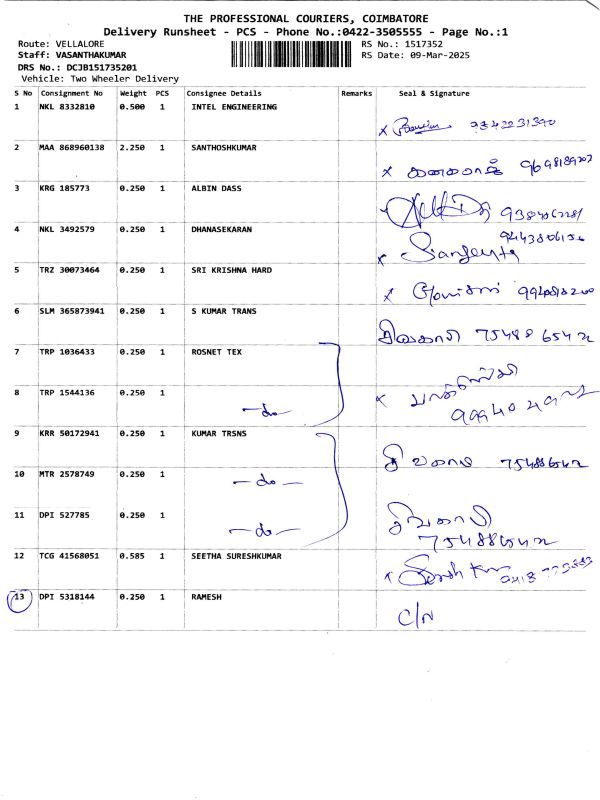 THE PROFESSIONAL COURIERS, COIMBATORE
Delivery Runsheet - PCS - Phone No.:0422-3505555 - Page No.:1
Route: VELLALORE RS No.: 1517352
Staff: VASANTHAKUMAR RS Date: 09-Mar-2025
DRS No.: DCJB151735201
Vehicle: Two Wheeler Delivery
S No Consignment No Weight PCS Consignee Details Remarks Seal & Signature
1 NKL 8332810 0.500 1 INTEL ENGINEERING
x 9342231390
2 MAA 868960138 2.250 1 SANTHOSHKUMAR
x
3 KRG 185773 0.250 1 ALBIN DASS
4 NKL 3492579 0.250 1 DHANASEKARAN
x
5 TRZ 30073464 0.250 1 SRI KRISHNA HARD
x
6 SLM 365873941 0.250 1 S KUMAR TRANS
7 TRP 1036433 0.250 1 ROSNET TEX
8 TRP 1544136 0.250 1 -do- x
9 KRR 50172941 0.250 1 KUMAR TRSNS
10 MTR 2578749 0.250 1 -do-
11 DPI 527785 0.250 1 -do-
12 TCG 41568051 0.585 1 SEETHA SURESHKUMAR
x
13 DPI 5318144 0.250 1 RAMESH
C/N